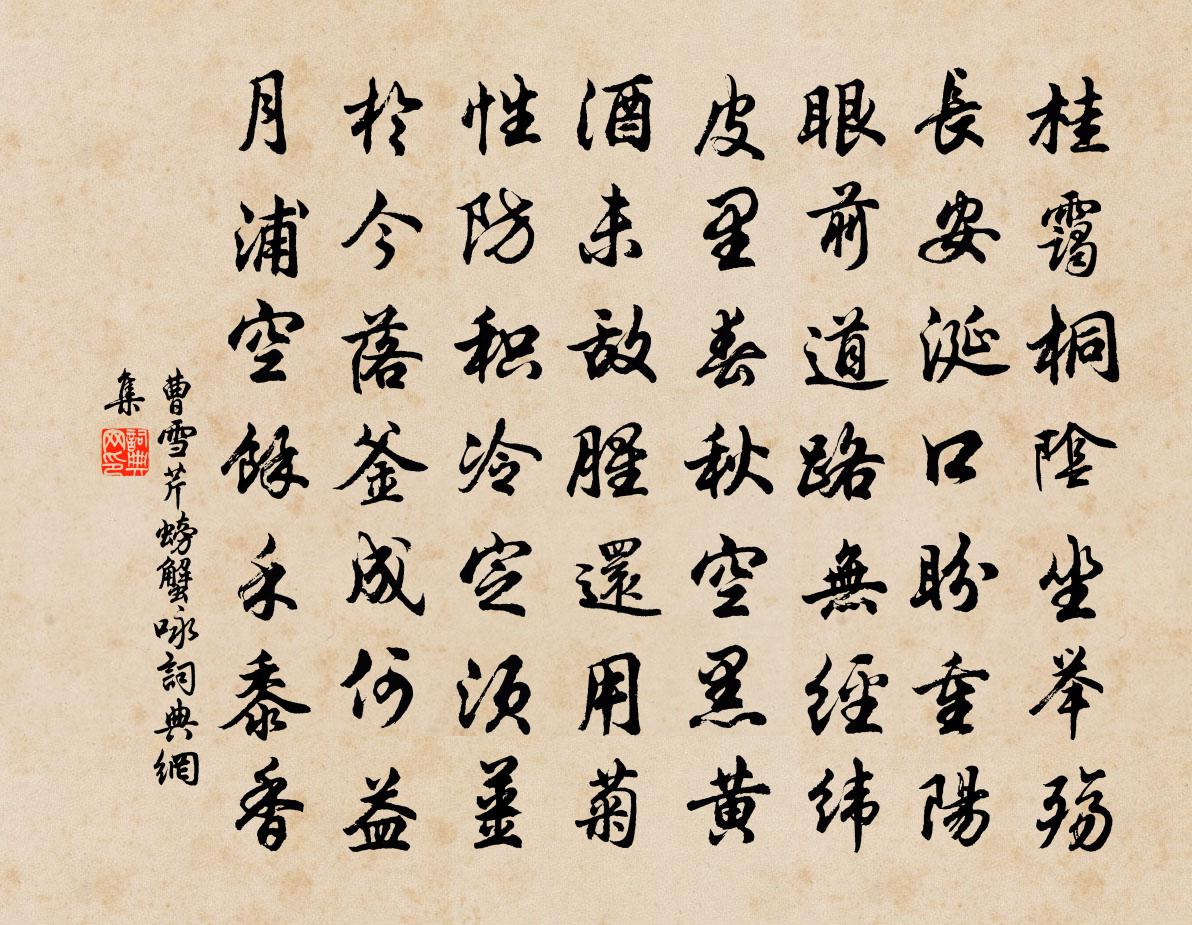 桂靄桐陰坐举殤
長安涎口盼重陽
眼前道路無經緯
皮里春秋空黑黄
酒未敌腥還用菊
性防积冷定須薑
於今落釜成何益
月浦空餘禾黍香
曹雪芹螃蟹咏詞典網
集
詞典
网印